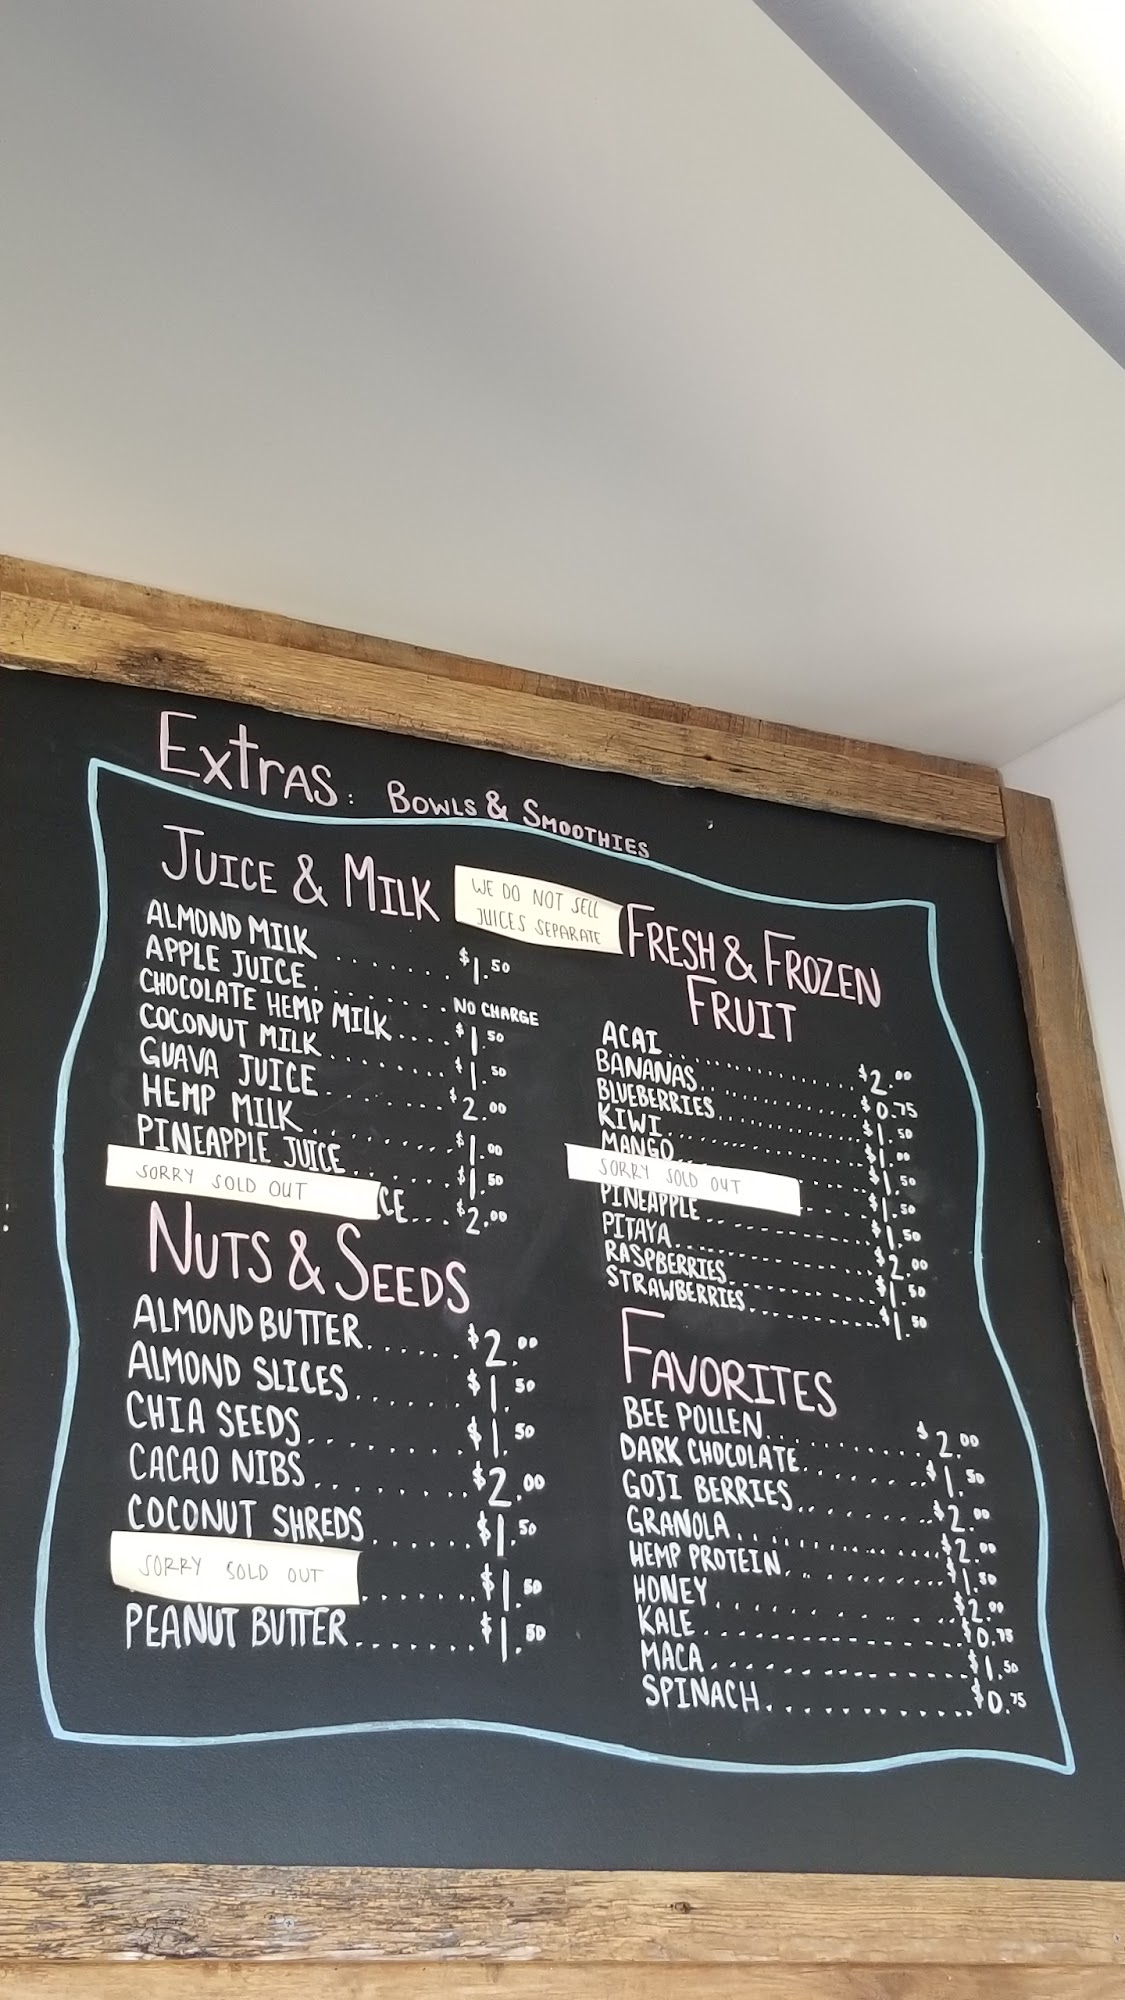 Extras: Bowls & Smoothies
JUICE & MILK
WE DO NOT SELL
JUICES SEPARATE
ALMOND MILK ....... $1.50
APPLE JUICE ........ NO CHARGE
CHOCOLATE HEMP MILK .... $1.50
COCONUT MILK ........ $1.50
GUAVA JUICE ........ $2.00
HEMP MILK ........ $1.00
PINEAPPLE JUICE ...... $1.50
SORRY SOLD OUT CE... $2.00
NUTS & SEEDS
ALMOND BUTTER...... $2.00
ALMOND SLICES...... $1.50
CHIA SEEDS........ $1.50
CACAO NIBS........ $2.00
COCONUT SHREDS ...... $1.50
SORRY SOLD OUT ....... $1.50
PEANUT BUTTER....... $1.50
FRESH & FROZEN
FRUIT
ACAI .............. $2.00
BANANAS ............ $0.75
BLUEBERRIES ............ $1.50
KIWI .............. $1.00
MANGO .............. $1.50
SORRY SOLD OUT .... $1.50
PINEAPPLE ............ $1.50
PITAYA .............. $2.00
RASPBERRIES ............ $1.50
STRAWBERRIES .......... $1.50
FAVORITES
BEE POLLEN .......... $2.00
DARK CHOCOLATE ....... $1.50
GOJI BERRIES ......... $2.00
GRANOLA ............ $2.00
HEMP PROTEIN .......... $1.50
HONEY ............ $2.00
KALE .............. $0.75
MACA .............. $1.50
SPINACH ............ $0.75